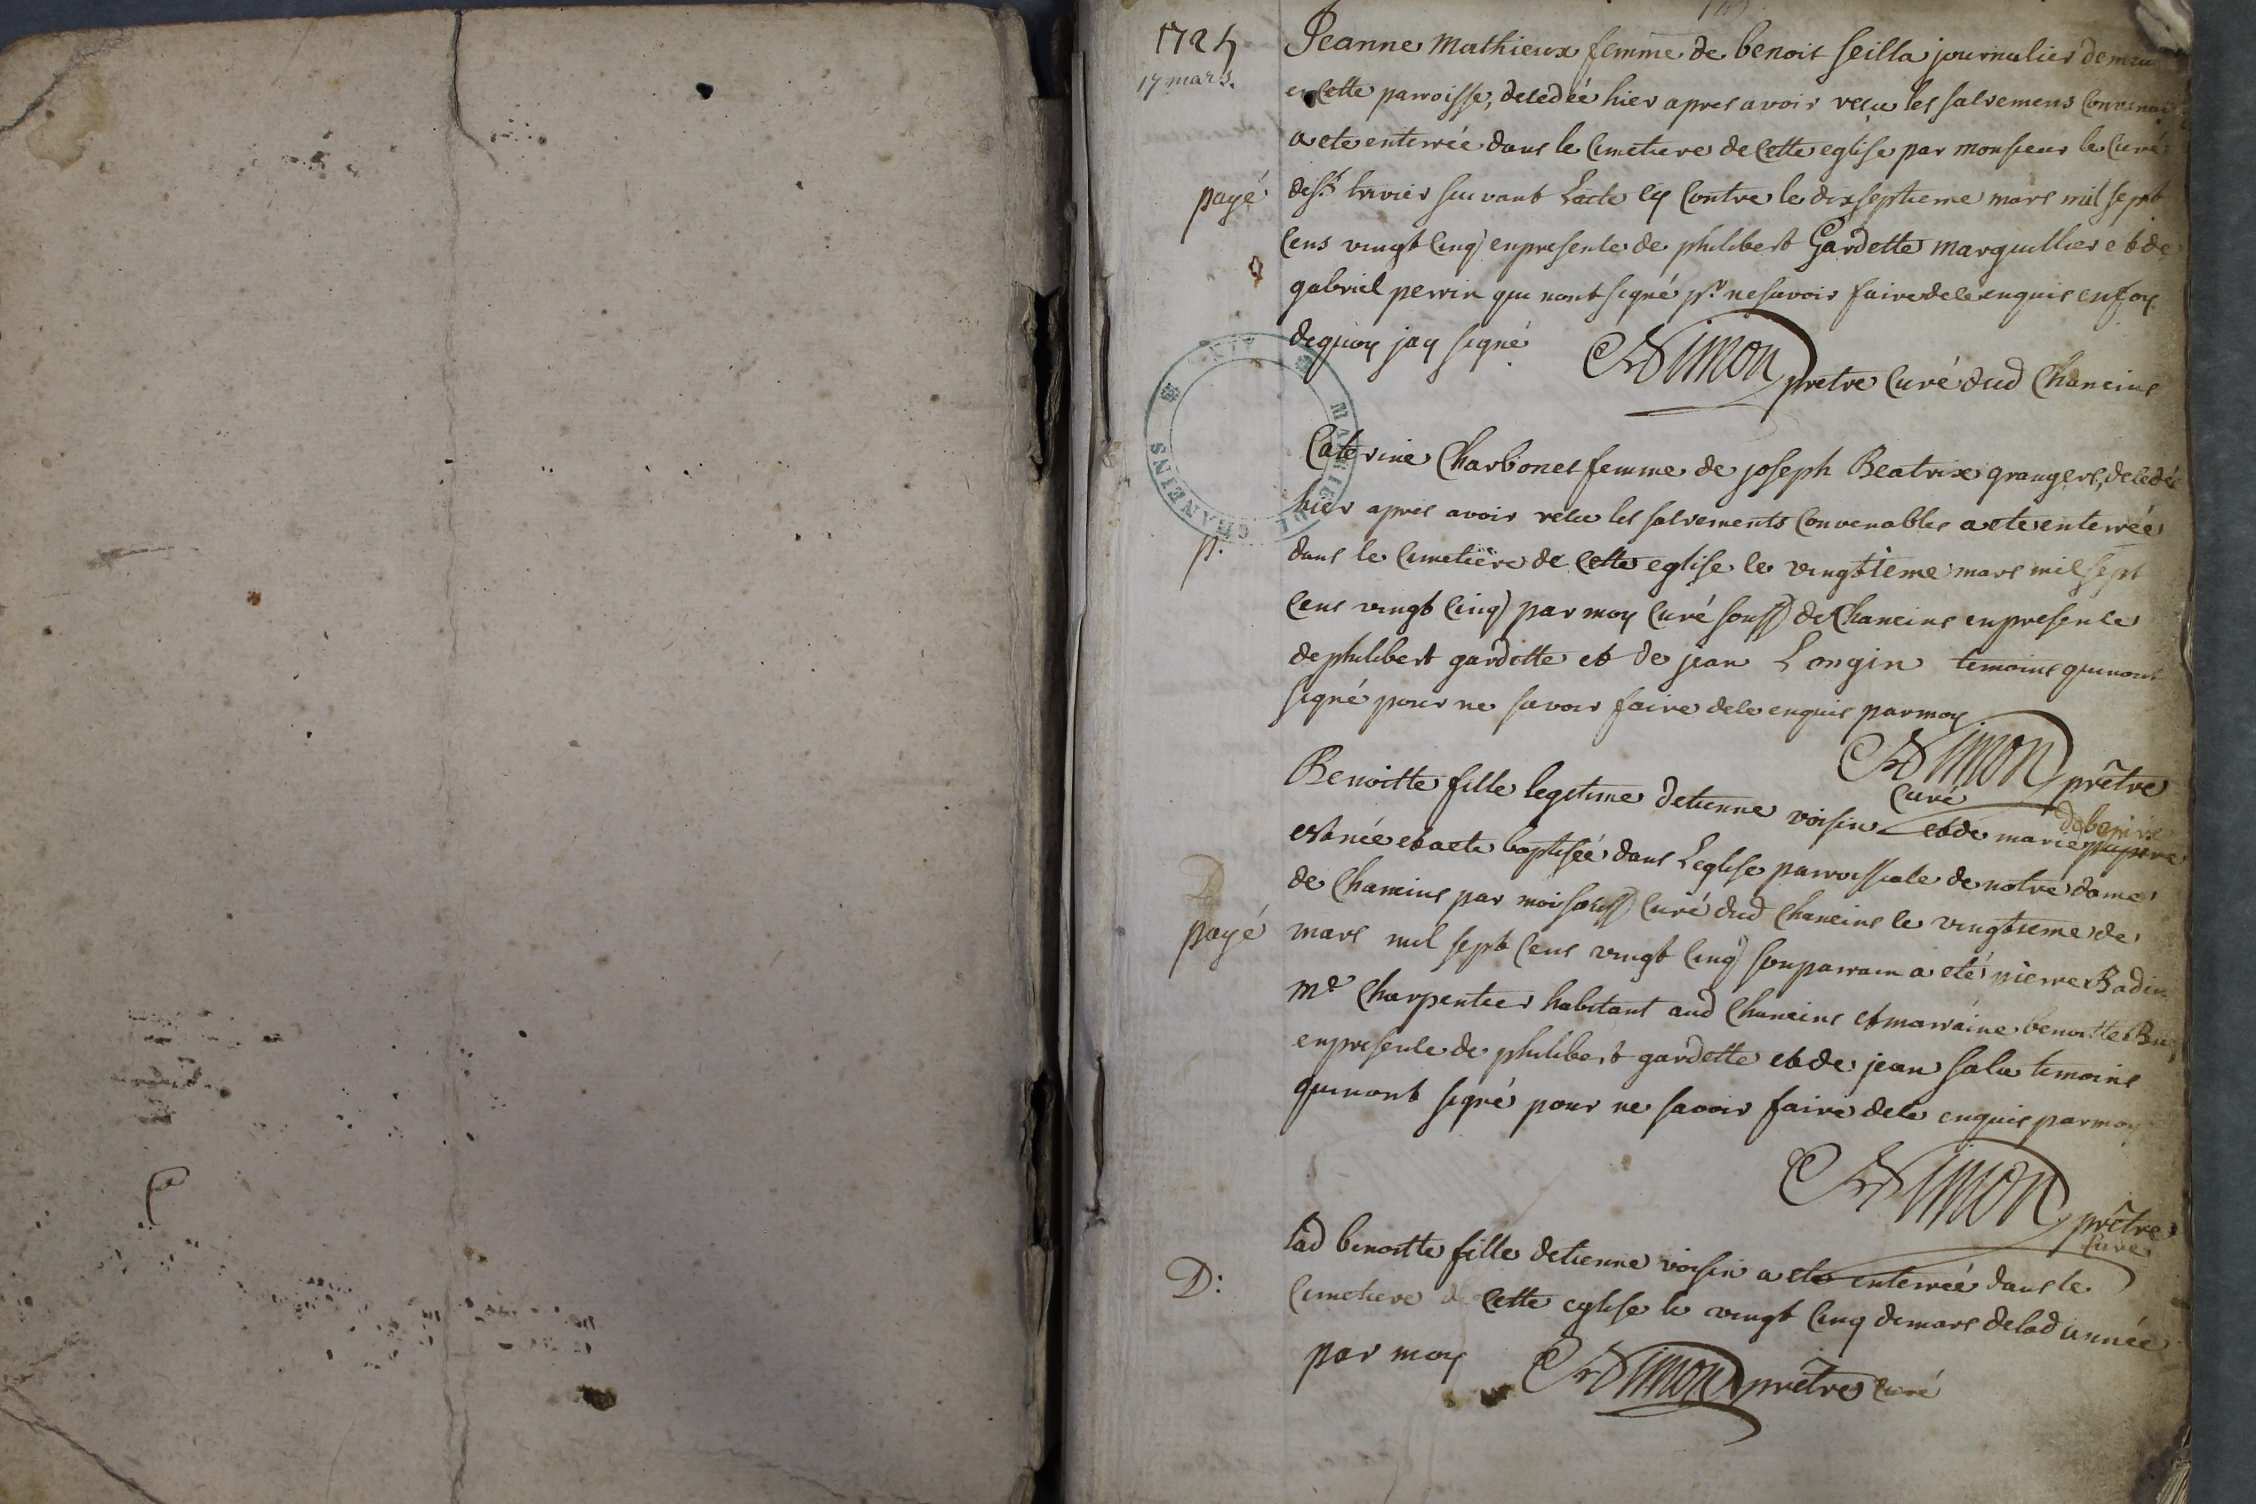 1725
17 mars.
Jeanne Mathieux femme de benoit seilla journalier demeu
en Cette parroisse, decedée hier apres avoir reçu les sacremens Convena
a ete enterrée dans le Cimetiere de Cette eglise par monsieur le Curé
payé
de st. trivier suivant Lacte cy Contre le dixseptieme mars mil sept
Cens vingt Cinq en presence de philibert Gardette marguillier et de
gabriel perrin qui nont signé pr. ne savoir faire de ce enquis en foy
de quoy jay signé Simon pretre Curé dud Chaneins
MAIRIE DE CHANEINS
Caterine Charbonet femme de joseph Beatrix grangers, decedée
hier apres avoir recu les sacrements Convenables a ete enterrée
p.
dans le Cimetiere de Cette eglise le vingtieme mars mil sept
Cens vingt Cinq par moy Curé souss de Chaneins en presence
de philibert gardette et de jean Longin temoins qui nont
signé pour ne savoir faire de ce enquis par moy
Simon prêtre
Curé
Benoitte fille legitime detienne voisin et de marie
est née et a ete baptisée dans Leglise parroissiale de notre dame
de Chaneins par moi souss Curé dud Chaneins le vingtieme de
payé
mars mil sept Cens vingt Cinq son parrain a eté pierre Badin
Me Charpentier habitant aud Chaneins et marraine benoitte
en presence de philibert gardette et de jean sala temoins
qui nont signé pour ne savoir faire de ce enquis par moy
Simon prêtre
Curé
D:
Lad benoitte fille detienne voisin a ete enterrée dans le
Cimetiere de Cette eglise le vingt Cinq de mars de lad année
par moy Simon prêtre Curé